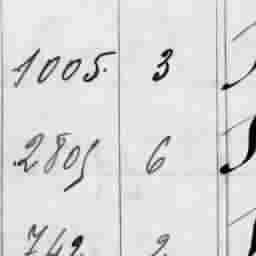 1005. 3
2805 6
742 2